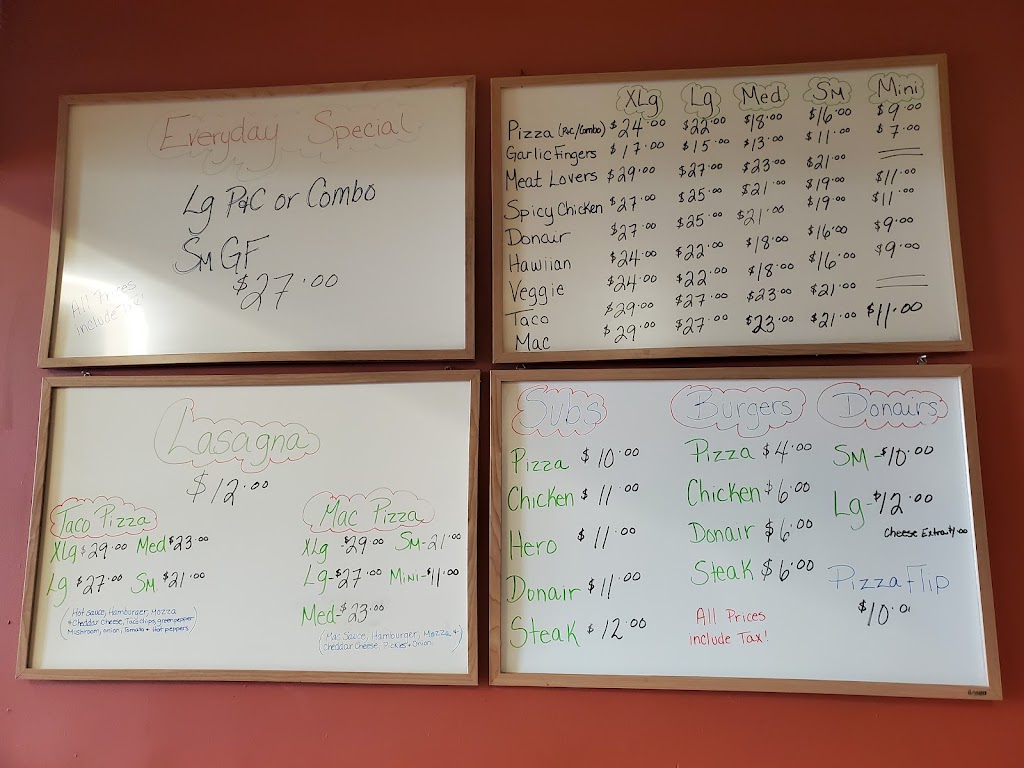 Everyday Special
Lg P&C or Combo
Sm GF
$27.00
All Prices
include Tax!
XLg Lg Med Sm Mini
Pizza (P&C/Combo) $24.00 $22.00 $18.00 $16.00 $9.00
Garlic Fingers $17.00 $15.00 $13.00 $11.00 $7.00
Meat Lovers $29.00 $27.00 $23.00 $21.00
Spicy Chicken $27.00 $25.00 $21.00 $19.00 $11.00
Donair $27.00 $25.00 $21.00 $19.00 $11.00
Hawiian $24.00 $22.00 $18.00 $16.00 $9.00
Veggie $24.00 $22.00 $18.00 $16.00 $9.00
Taco $29.00 $27.00 $23.00 $21.00
Mac $29.00 $27.00 $23.00 $21.00 $11.00
Lasagna
$12.00
Taco Pizza
XLg $29.00 Med $23.00
Lg $27.00 Sm $21.00
(Hot sauce, Hamburger, Mozza
& Cheddar Cheese, Taco chips, green pepper
Mushroom, onion, Tomato + Hot peppers)
Mac Pizza
XLg -$29.00 Sm-21.00
Lg-$27.00 Mini-$11.00
Med-$23.00
(Mac Sauce, Hamburger, Mozza +
Cheddar Cheese, Pickles + Onion)
Subs
Pizza $10.00
Chicken $11.00
Hero $11.00
Donair $11.00
Steak $12.00
Burgers
Pizza $4.00
Chicken $6.00
Donair $6.00
Steak $6.00
All Prices
include Tax!
Donairs
Sm -$10.00
Lg-$12.00
Cheese Extra $1.00
Pizza Flip
$10.00